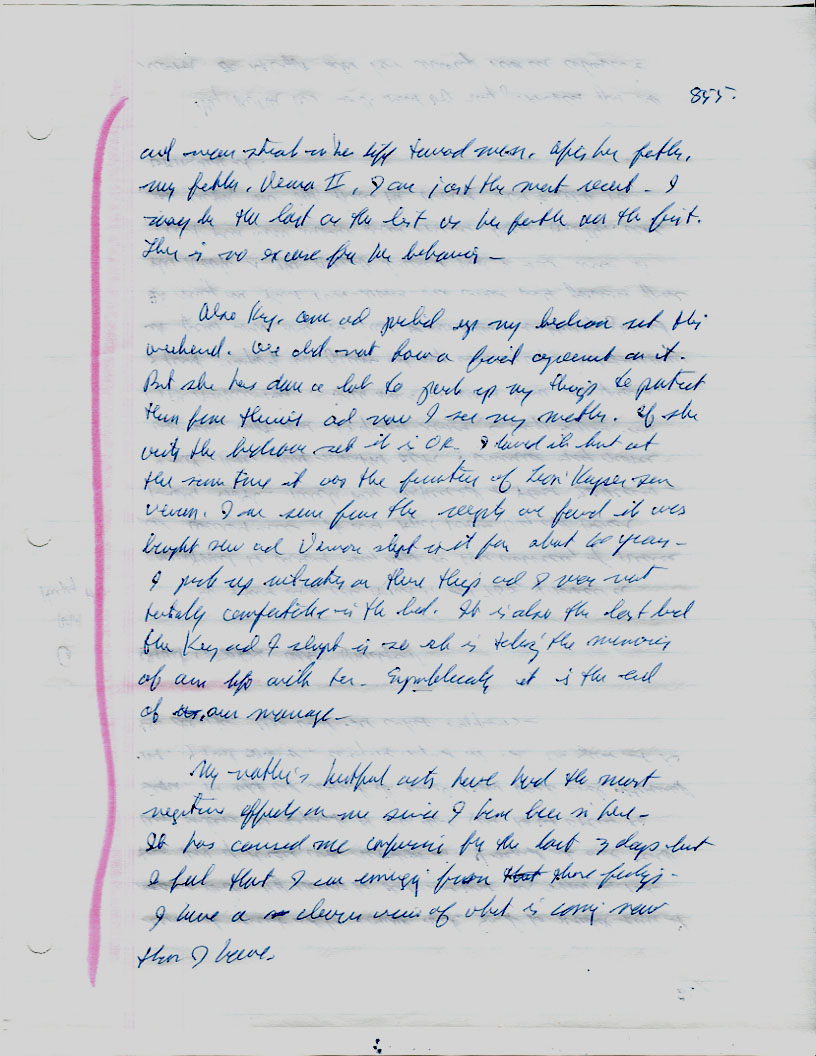 855.
and mean streak in her life toward men. After her father,
my father, Vernon II, I am just the most recent - I
may be the last on the list as her father was the first.
There is no excuse for her behavior -
Also Kay came and picked up my bedroom set this
weekend. We did not have a final agreement on it.
But she has done a lot to pack up my things to protect
them from thieves and now I see my mother. If she
wants the bedroom set it is OK. I loved it but at
the same time it was the furniture of Leon Kayser
Vernon. I am sure from the receipts we found it was
bought new and Vernon slept in it for about 60 years -
I pick up vibrations on these things and I was not
totally comfortable in the bed. It is also the last bed
that Kay and I slept in so she is taking the memories
of our life with her. Symbolically it is the end
of our marriage -
My mother's hurtful acts have had the most
negative effects on me since I have been in here -
It has caused me confusion for the last 3 days but
I feel that I am emerging from those feelings -
I have a clearer view of what is coming now
than I have.